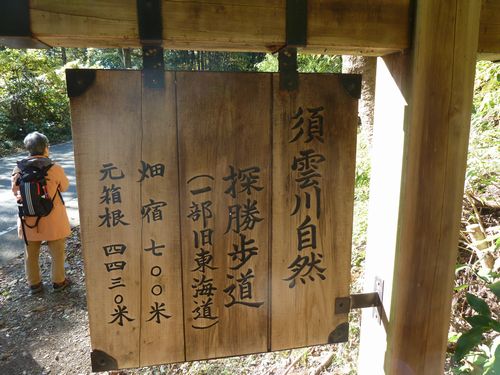 須雲川自然
探勝歩道
(一部旧東海道)
畑宿 七〇〇米
元箱根 四四三〇米